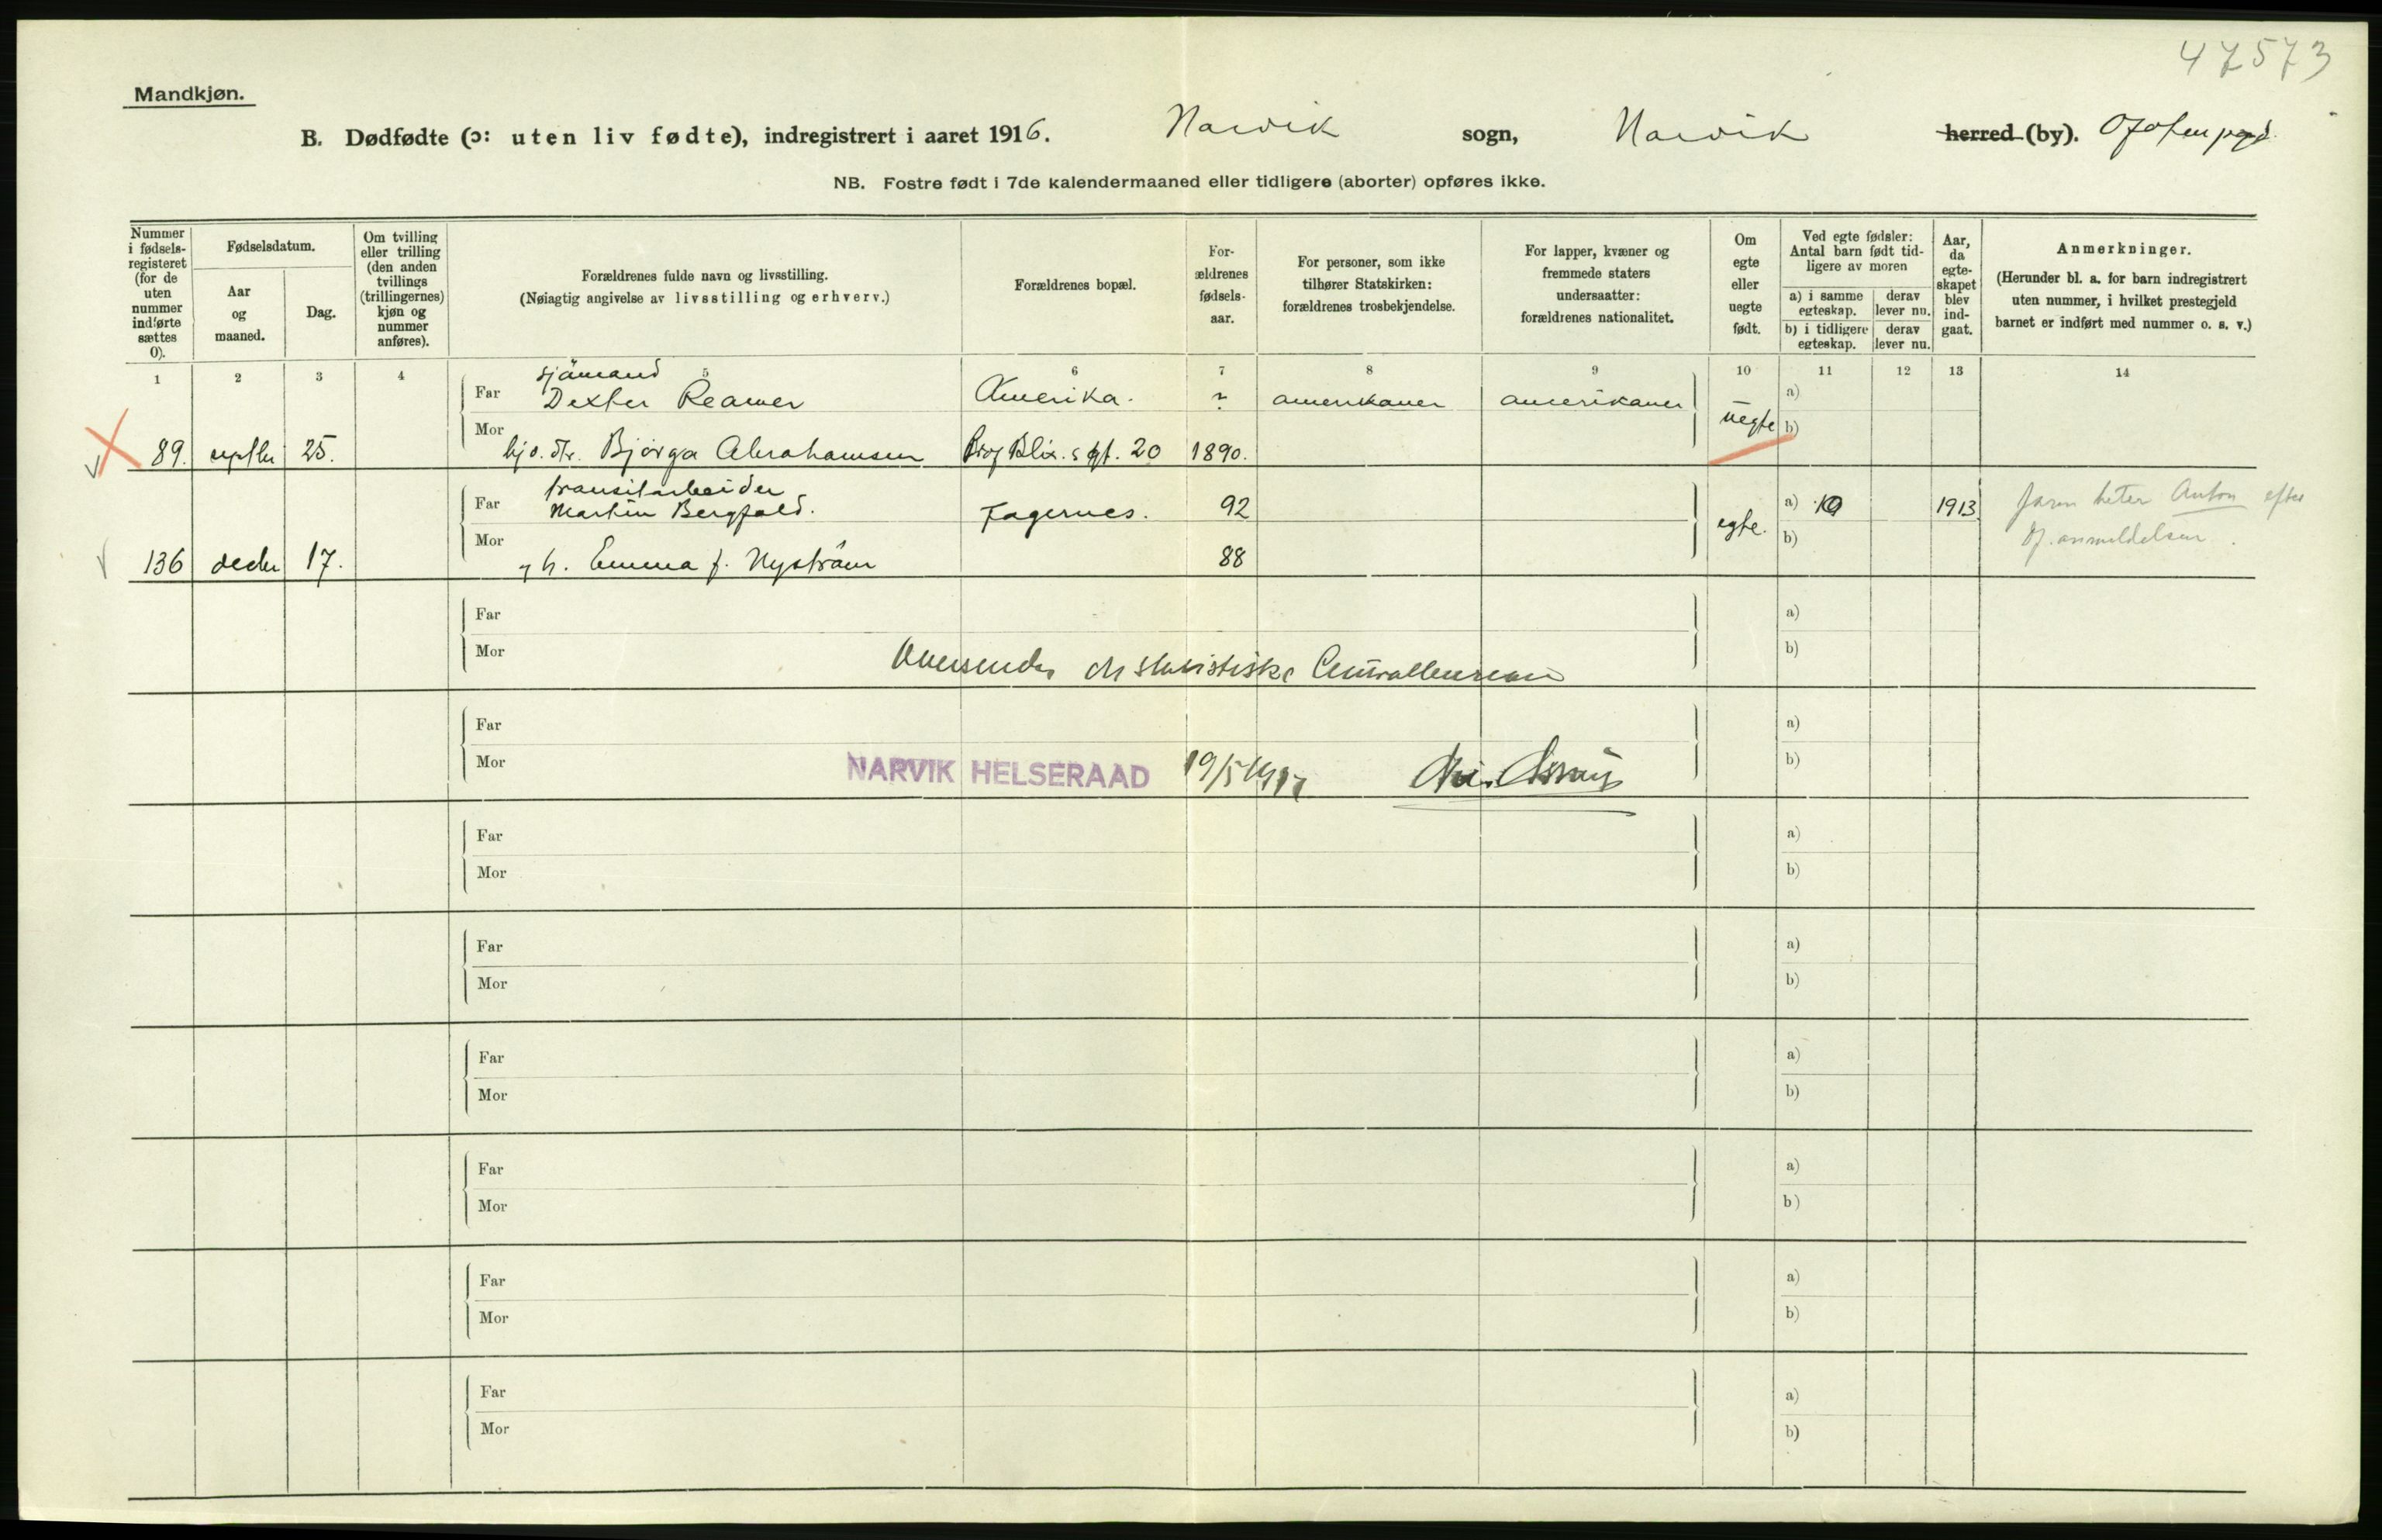 47573
Mandkjøn.
B. Dødfødte (ɔ: uten liv fødte), indregistrert i aaret 1916. Narvik sogn, Narvik herred (by). Ofoten pgd.
NB. Fostre født i 7de kalendermaaned eller tidligere (aborter) opføres ikke.
Nummer
i fødsels-
registeret
(for de
uten
nummer
indførte
sættes
0).
Fødselsdatum.
Aar
og
maaned.
Dag.
Om tvilling
eller trilling
(den anden
tvillings
(trillingernes)
kjøn og
nummer
anføres).
Forældrenes fulde navn og livsstilling.
(Nøiagtig angivelse av livsstilling og erhverv.)
Forældrenes bopæl.
For-
ældrenes
fødsels-
aar.
For personer, som ikke
tilhører Statskirken:
forældrenes trosbekjendelse.
For lapper, kvæner og
fremmede staters
undersaatter:
forældrenes nationalitet.
Om
egte
eller
uegte
født.
Ved egte fødsler:
Antal barn født tid-
ligere av moren
a) i samme
egteskap.
derav
lever nu.
b) i tidligere
egteskap.
derav
lever nu.
Aar,
da
egte-
skapet
blev
ind-
gaat.
Anmerkninger.
(Herunder bl. a. for barn indregistrert
uten nummer, i hvilket prestegjeld
barnet er indført med nummer o. s. v.)
1 2 3 4 5 6 7 8 9 10 11 12 13 14
sjömand
Far Dexter Reamer Amerika. ? amerikaner amerikaner a)
Mor uegte b)
89. septbr 25. Bjørga Abrahamsen 20 1890.
transitarbeider
Far Martin Bergfald. Fagernes. 92 a) 1913 faren heter Anton efter
Mor egte. b)
136 decbr 17. Emma f. Nyström 88
Far a)
Mor b)
Oversendes det statistiske Centralbureau
Far a)
Mor b)
NARVIK HELSERAAD 19/5 1917
Far a)
Mor b)
Far a)
Mor b)
Far a)
Mor b)
Far a)
Mor b)
Far a)
Mor b)
Far a)
Mor b)